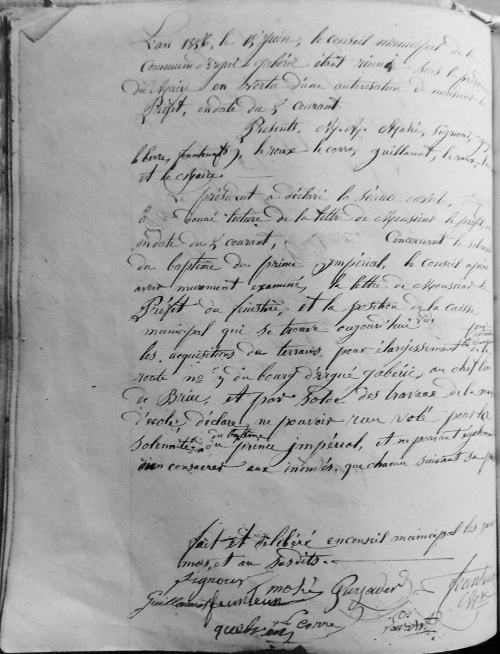 L'an 1856, le 15 Juin, le conseil municipal de la
Commune d'Ergué-gabéric étant réuni sous la
du Maire en vertu d'une autorisation de monsieur le
Préfet, en date du 5 courant
Présents, M.M. Mahé, Signour,
le berre, feunteun, le roux le corre, guillamet, le
et le Maire.
Le président a déclaré la séance
a donné lecture de la lettre de Monsieur le préfet,
en date du 5 courant, Concernant
du baptême du prince impérial, le conseil après
avoir murement examiné, la lettre de Monsieur le
Préfet du finistère, et la position de la caisse
municipal qui se trouve aujourd'hui
les acquisitions du terrains, pour élargissement de la
route no 7 du bourg d'Ergué gabéric, au chef lieu
de Briec, et par solde des travaux de la
d'école, déclare, ne pouvoir rien voté pour la
solemnité du baptême du prince impérial, et ne pouvant
rien consacrer aux inondés, que chacun suivant sa
fait et délibéré en conseil municipal les jour
mois, et an susdits.
Signour
Guillamet feunteun mahé Guyader
quelven Corre